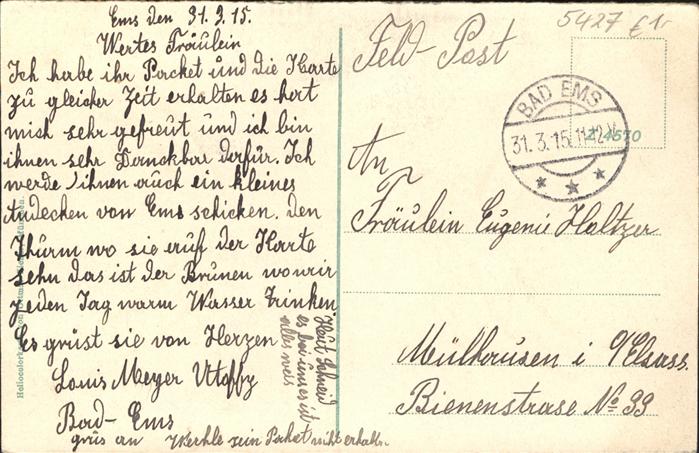 Ems den 31.3.15.
Wertes Fräulein
Ich habe ihr Packet und die Karte
zu gleicher Zeit erhalten es hert
mich sehr gefreut und ich bin
ihnen sehr Danckbar dafür. Ich
werde ihnen auch ein kleines
Andecken von Ems schicken. den
Thurm wo sie auf der Karte
sehn das ist der Brunen wo wir
jeden Tag warm Wasser Trinken.
Es grüst sie von Herzen
Louis Meyer
Bad-Ems
grüs an sein Paket nicht erhalten.
Heut schneid
es bei uns ist
alles weis
Feld-Post
5427 €
BAD EMS
31.3.15.11-12V
4570
An
Fräulein Eugenie Haltzer
Mülhausen i/Elsass.
Bienenstrase No 39